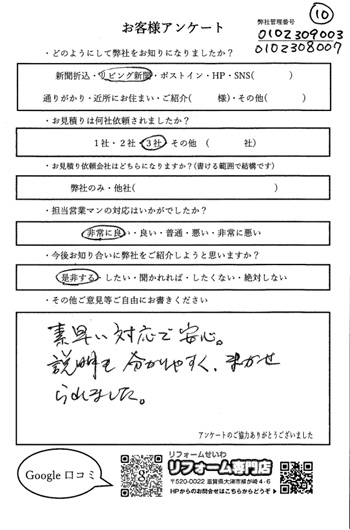 10
お客様アンケート
弊社管理番号
0102309003
0102308007
・どのようにして弊社をお知りになりましたか？
新聞折込・リビング新聞・ポストイン・HP・SNS(　　　)
通りがかり・近所にお住まい・ご紹介(　　　様)・その他(　　　)
・お見積りは何社依頼されましたか？
1社・2社・3社・その他 (　　　社)
・お見積り依頼会社はどちらになりますか？(書ける範囲で結構です)
弊社のみ・他社(　　　)
・担当営業マンの対応はいかがでしたか？
非常に良い・良い・普通・悪い・非常に悪い
・今後お知り合いに弊社をご紹介しようと思いますか？
是非する・したい・聞かれれば・したくない・絶対しない
・その他ご意見等ご自由にお書きください
素早い対応で安心。
説明も分かりやすく、まかせ
られました。
アンケートのご協力ありがとうございました
Google 口コミ
リフォームせいわ
リフォーム専門店
〒520-0022 滋賀県大津市柳が崎4-6
HPからのお問合せはこちらからどうぞ